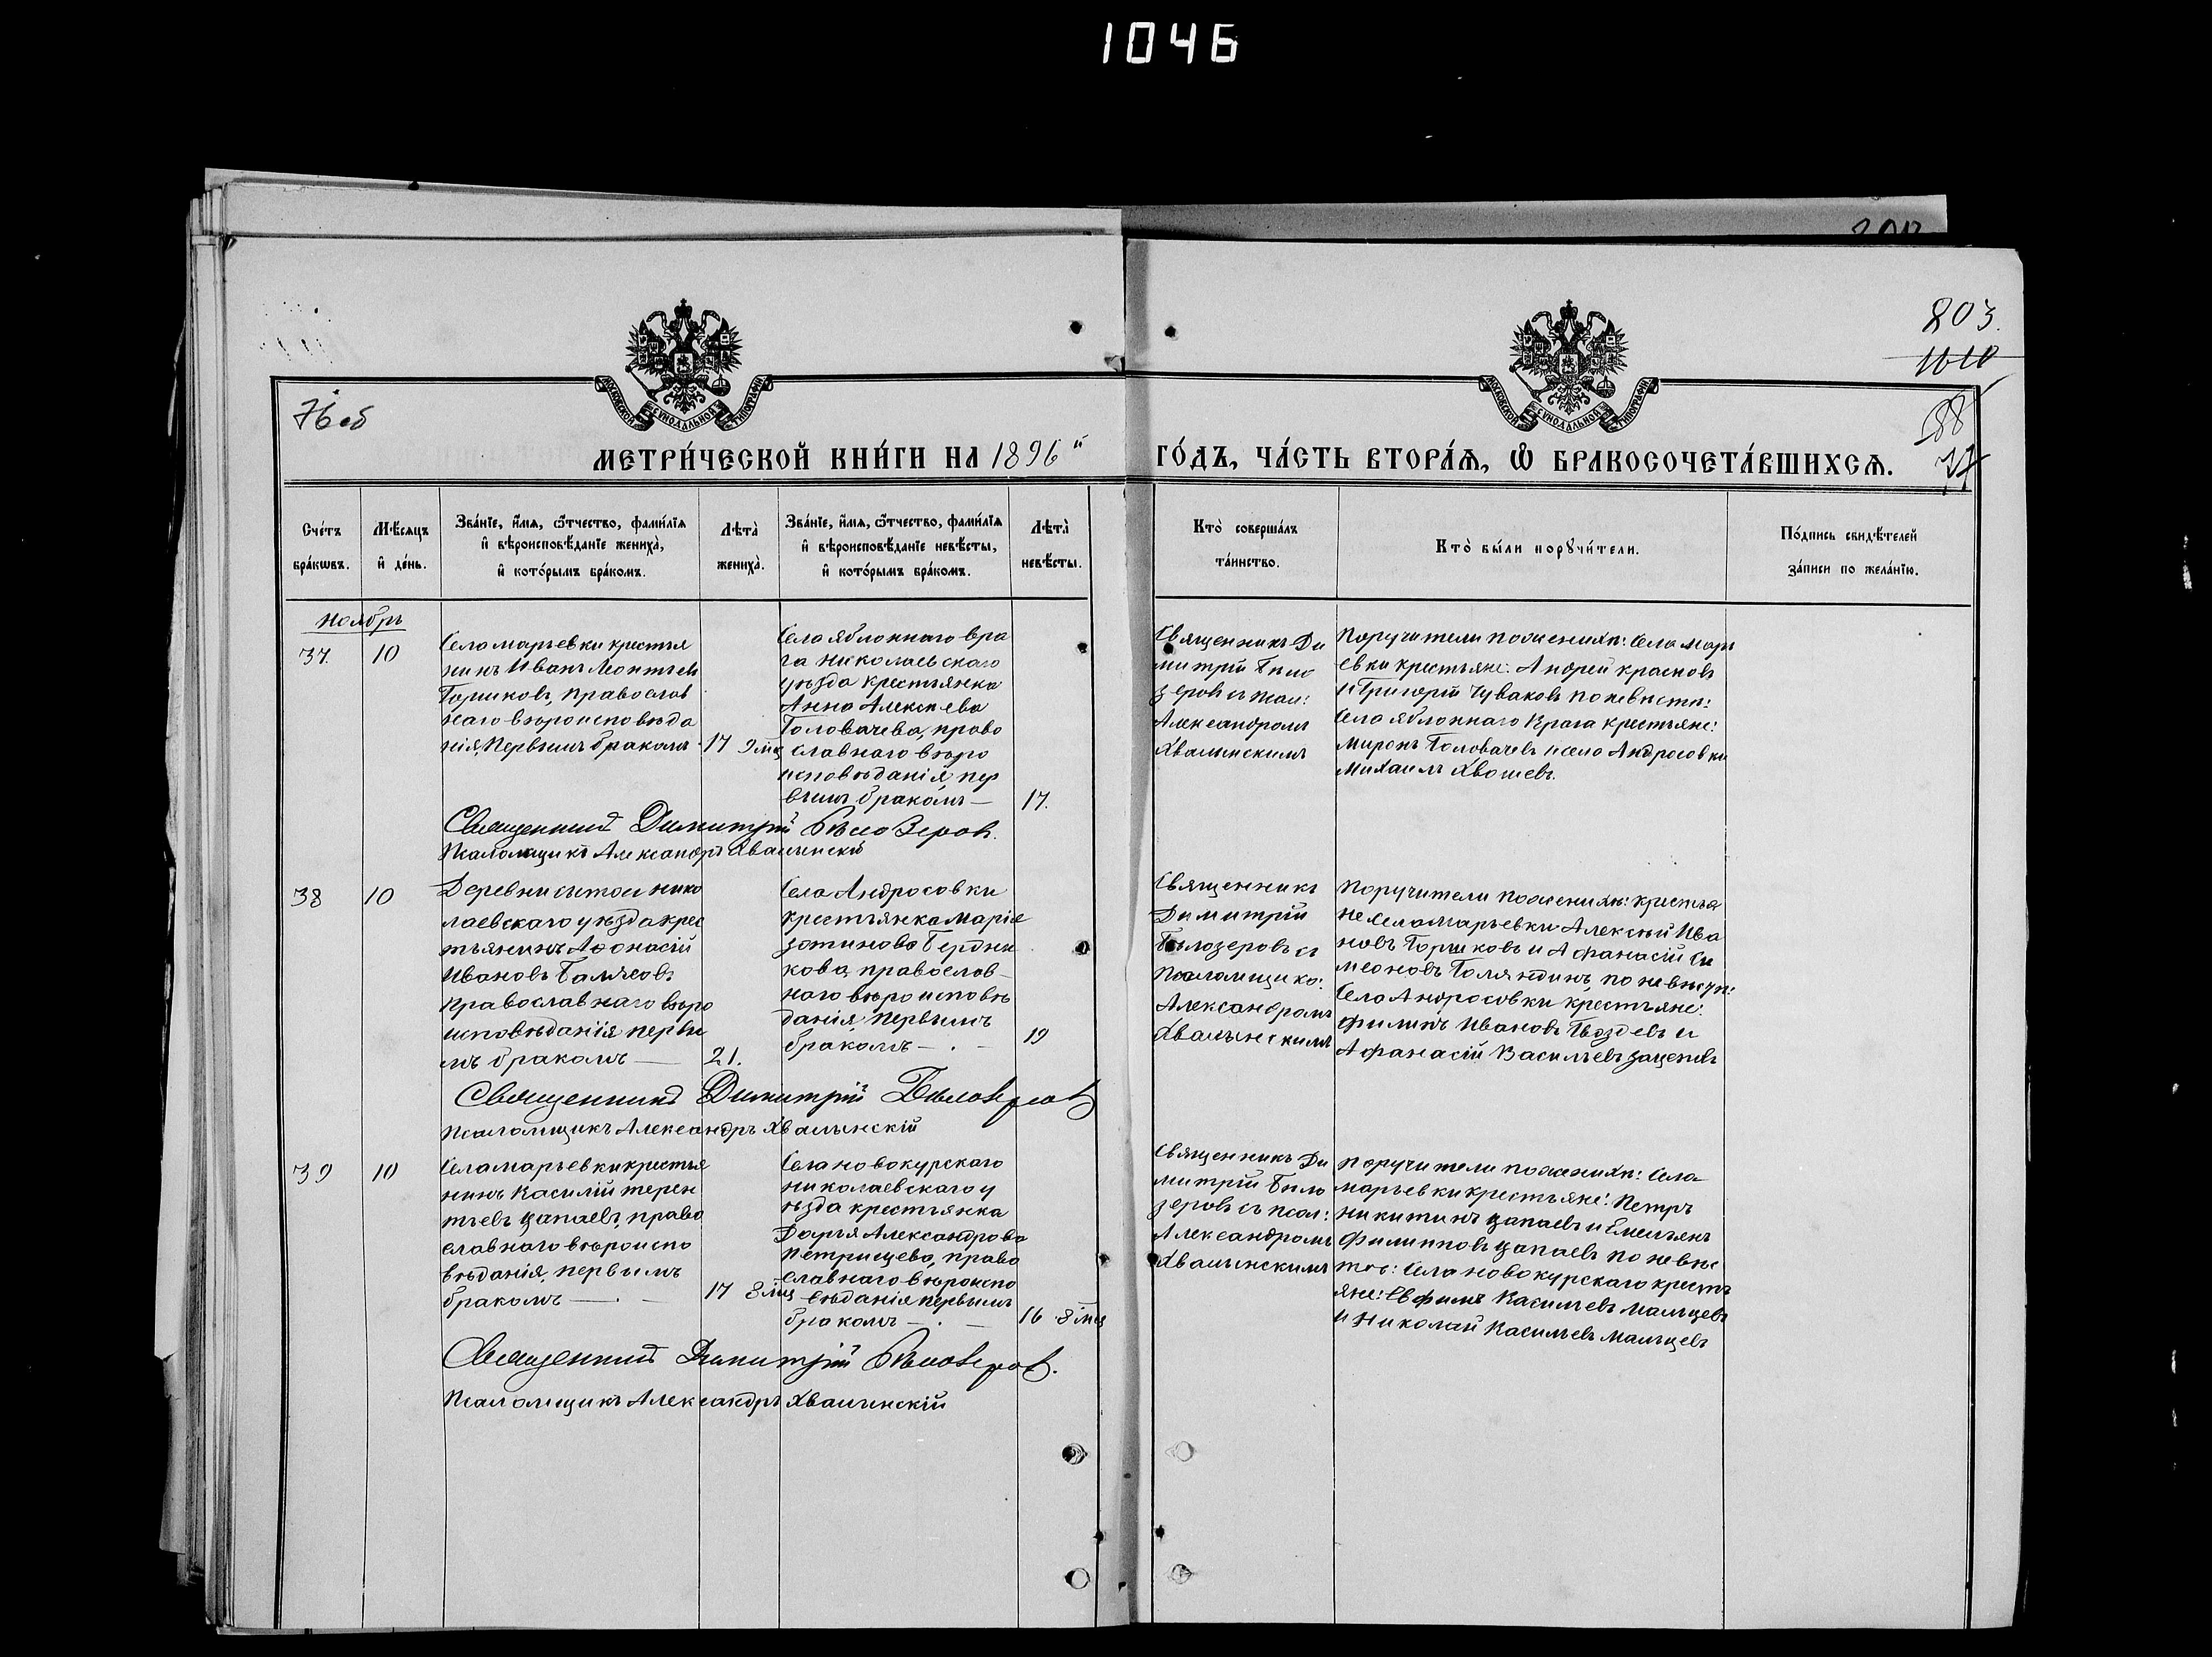 1046
803.
1610
76 об
188
77
МОСКОВСКОЙ СѴНОДАЛЬНОЙ ТИПОГРАФІИ
МОСКОВСКОЙ СѴНОДАЛЬНОЙ ТИПОГРАФІИ
МЕТРИ́ЧЕСКОЙ КНИ́ГИ НА 1896й ГО́ДЪ, ЧА́СТЬ ВТОРА́Я, Ѡ БРАКОСОЧЕТА́ВШИХСЯ.
Сче́тъ
бра́кѡвъ.
Мѣ́сяцъ
и҆ де́нь.
Зва́нїе, и҆́мя, ѻ҆́тчество, фами́лїя
и҆ вѣроисповѣ́данїе жениха̀,
и҆ кото́рымъ бра́комъ.
Лѣта̀
жениха̀.
Зва́нїе, и҆́мя, ѻ҆́тчество, фами́лїя
и҆ вѣроисповѣ́данїе невѣ́сты,
и҆ кото́рымъ бра́комъ.
Лѣта̀
невѣ́сты.
Кто̀ соверша́лъ
та́инство.
Кто̀ бы́ли порꙋчи́тели.
По́дпись свидѣ́телей
за́писи по жела́нїю.
Ноябрь
37.
10
Села Марьевки крестья
нинъ Иванъ Леонтьев
Горшковъ, православ
наго вѣроисповѣда
нія, Первымъ бракомъ
17 9 мц
Села Яблоннаго вра
га Николаевскаго
уѣзда крестьянка
Анна Алексѣева
Головачева, право
славнаго вѣро
исповѣданія, пер
вымъ бракомъ —
17.
Священникъ Ди
митрій Бѣло
зеровъ съ псал:
Александромъ
Хвалынскимъ
Поручители по женихѣ: Села Марь
евки крестьяне: Андрей Красновъ
и Григорій Чуваковъ по невѣсты:
Села Яблоннаго Врага крестьяне:
Миронъ Головачевъ и села Андросовки
Михаилъ Хвошевъ.
Священникъ Димитрій Бѣлозеровъ.
Псаломщикъ Александръ Хвалынскій
38
10
Деревни Сѣтои Нико
лаевскаго уѣзда крес
тьянинъ Афонасій
Ивановъ
Православнаго вѣро
исповѣданія первы
мъ бракомъ —
21.
Села Андросовки
крестьянка Марія
Зотикова Бердни
кова, православ
наго вѣроисповѣ
данія, первымъ
бракомъ — . —
19
Священникъ
Димитрій
Бѣлозеровъ съ
Псаломщико:
Александромъ
Хвалынскимъ
Поручители по женихѣ: крестья
не села Марьевки Алексѣй Ива
новъ Горшковъ и Афанасій Си
меоновъ Голяндинъ, по невѣсти:
Села Андросовки крестьяне:
Филипъ Ивановъ Гвоздевъ и
Афанасій Васильевъ Зацепивъ
Священникъ Димитрій Бѣлозеровъ
Псаломщикъ Александръ Хвалынскій
39
10
Села Марьевки крестья
нинъ Василій Терен
тьевъ Цапаевъ, право
славнаго вѣроиспо
вѣданія, первымъ
бракомъ — . —
17 8 мц
Села Новокурскаго
Николаевскаго у
ѣзда крестьянка
Дарья Александрова
Петрищева, право
славнаго вѣроиспо
вѣданія первымъ
бракомъ — . —
16 8 мц
Священникъ Ди
митрій Бѣло
зеровъ съ псал:
Александромъ
Хвалынскимъ
Поручители по женихѣ: Села
Марьевки крестьяне: Петръ
Никитинъ Цапаевъ и Емельян
Филипповъ Цапаевъ по невѣс
тѣ: Села Новокурскаго кресть
яне: Евфимъ Васильевъ Мальцевъ
и Николай Васильевъ Мальцевъ
Священникъ Димитрій Бѣлозеровъ.
Псаломщикъ Александръ Хвалынскій